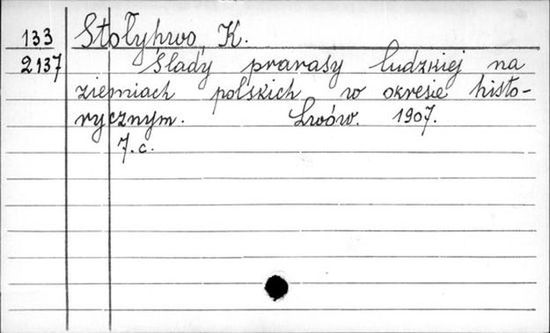 133 Stołyhwo, K.
2137 Ślady prarasy ludzkiej na
ziemiach polskich w okresie histo-
rycznym. Lwów. 1907.
7.c.